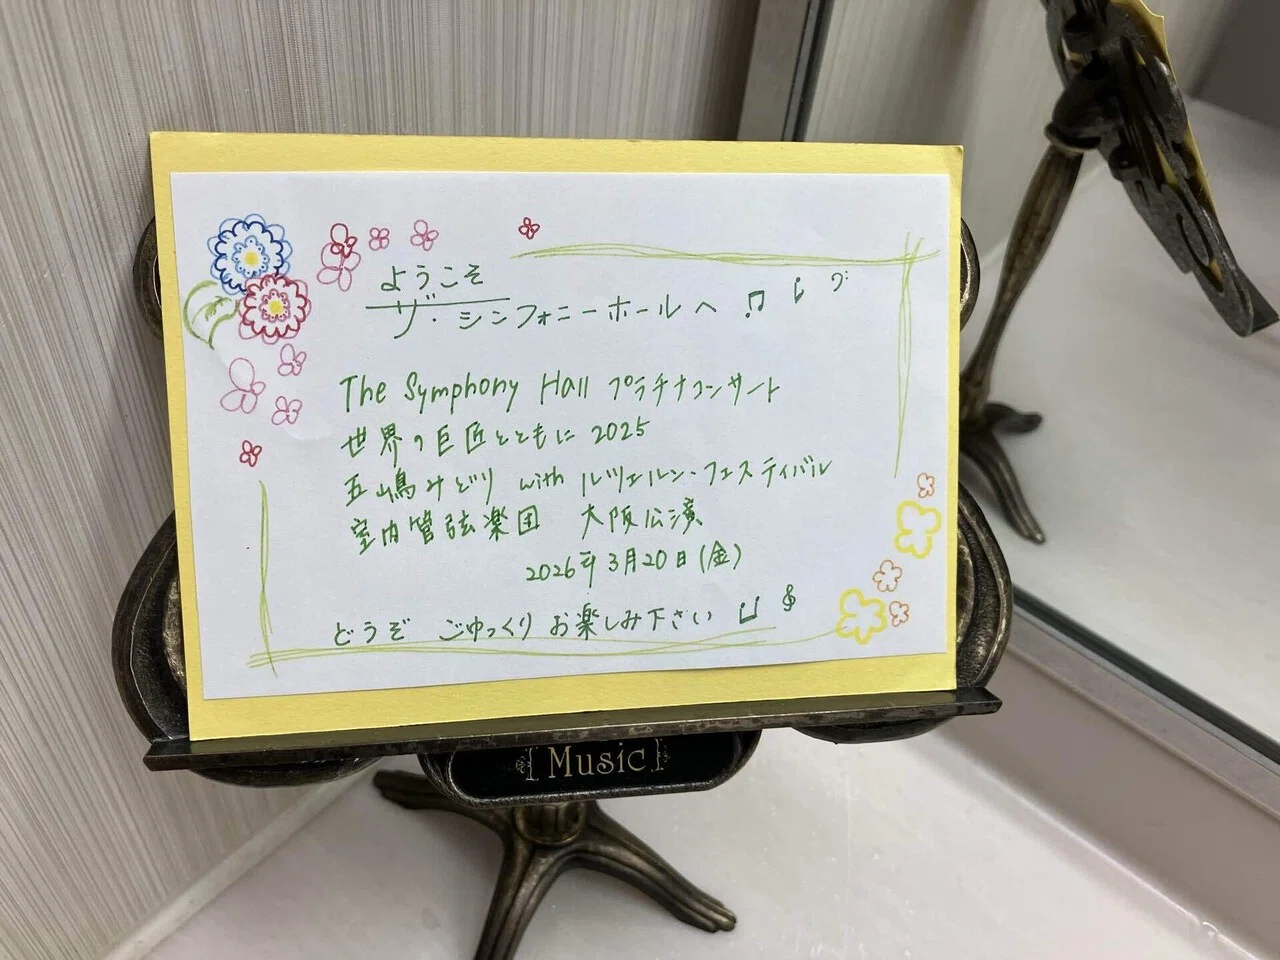 ようこそ
ザ・シンフォニーホールへ
The Symphony Hall プラチナコンサート
世界の巨匠とともに 2025
五嶋みどり with ルツェルン・フェスティバル
室内管弦楽団 大阪公演
2026年3月20日(金)
どうぞ ごゆっくり お楽しみ下さい
Music